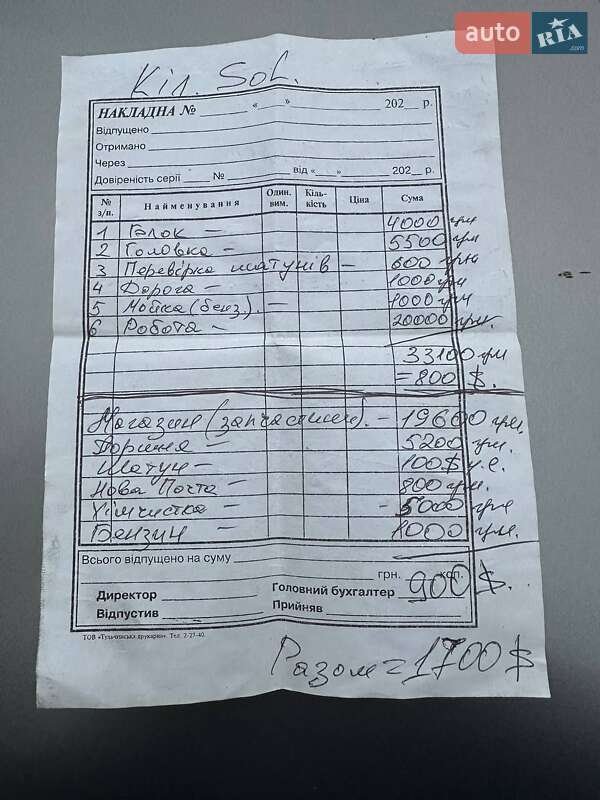 auto RIA .com
Кіл. Sol.
НАКЛАДНА № ______ «____» ____________ 202__ р.
Відпущено
Отримано
Через
Довіреність серії ____ № ________ від «____» ______ 202__ р.
№ з/п. Найменування Один. вим. Кіль-кість Ціна Сума
1 Блок – 4000 грн
2 Головка – 5500 грн
3 Перевірка шатунів – 600 грн
4 Дорога – 1000 грн
5 Мойка (бенз.) – 1000 грн
6 Робота – 20000 грн.
33100 грн
= 800 $.
Магазин (запчастини). – 19600 грн.
Поршня – 5200 грн.
Шатун – 100$ у.е.
Нова Почта – 800 грн.
Хімчистка – 5000 грн
Бензин – 1000 грн.
Всього відпущено на суму
грн. коп.
900 $.
Директор Головний бухгалтер
Відпустив Прийняв
ТОВ «Тульчинська друкарня». Тел. 2-27-40.
Разом = 1700 $